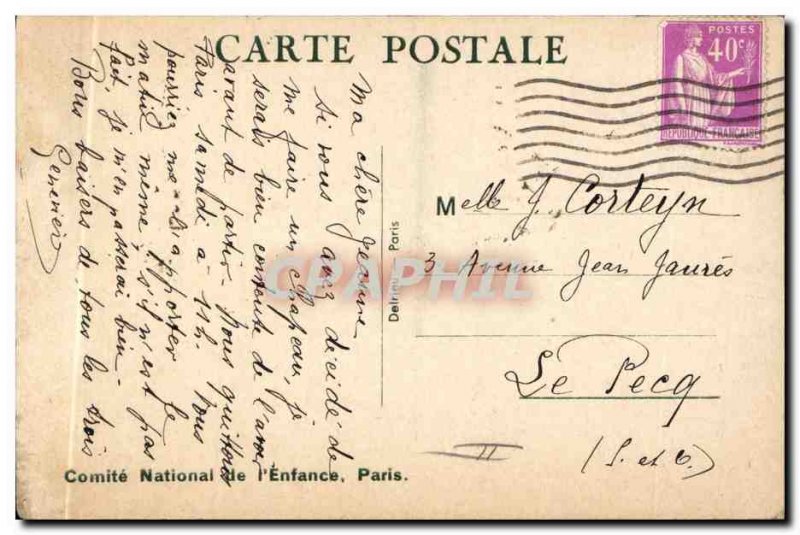 CARTE POSTALE
POSTES
40c
REPUBLIQUE FRANÇAISE
Ma chère Jeanne
si vous avez décidé de
me faire un chapeau, je
serais bien contente de l'avoir
avant de partir - Nous quittons
Paris samedi à 11h. Vous
pourriez me l'apporter le
matin même, s'il n'est pas
fait, je m'en passerai bien -
Bons baisers de tous les trois
Delrieu Paris
Melle J. Corteyn
3 Avenue Jean Jaurès
Le Pecq
(S. et O.)
II
Comité National de l'Enfance, Paris.
CPAPHIL